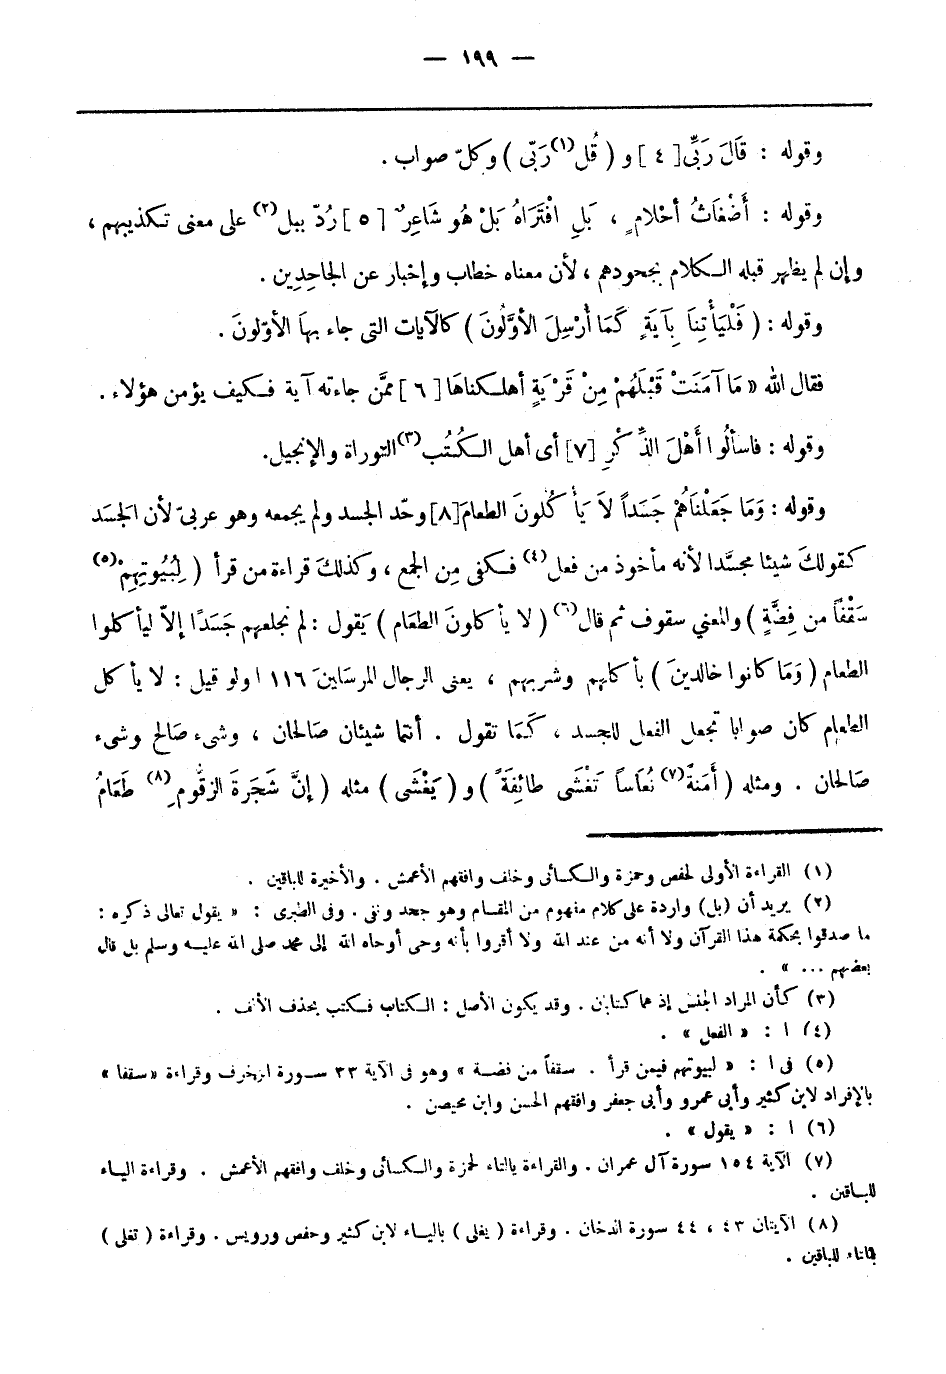 — ١٩٩ —
وقوله : قَالَ رَبِّى [ ٤ ] و ( قُل(١) رَبّى ) وكلّ صواب .
وقوله : أَضْغَاثُ أحْلامٍ ، بَلِ افْتَرَاهُ بَلْ هُو شَاعِرٌ [ ٥ ] رُدّ ببل(٢) على معنى تكذيبهم ،
وإن لم يظهر قبله الكلام بجحودهم ، لأن معناه خطاب وإخبار عن الجاحِدِين .
وقوله : ( فَلْيَأْتِنَا بِآيَةٍ كَمَا أُرْسِلَ الأوَّلُونَ ) كالآيات التى جاء بها الأوّلونَ .
فقال الله « مَا آمَنَتْ قَبْلَهُمْ مِنْ قَرْيَةٍ أهلكناهَا [ ٦ ] ممَّن جاءته آية فكيف يؤمن هؤلاء .
وقوله : فاسألُوا أَهْلَ الذِّكْرِ [٧] أى أهل الكُتُب(٣) التوراة والإنجيل.
وقوله : وَمَا جَعَلْنَاهُمْ جَسَداً لاَ يَأْكُلُونَ الطعامَ[٨] وحّد الجسد ولم يجمعه وهو عربىّ لأن الجسَد
كقولكَ شيئا مجسَّدا لأنه مأخوذ من فعل(٤) فكفى مِن الجمع ، وكذلكَ قراءة من قرأ ( لِبُيُوتِهِمْ(٥)
سَقْفاً من فِضَّةٍ ) والمعني سقوف ثم قال(٦) ( لا يأكلونَ الطعَام ) يَقول : لم نجعلهم جَسَدًا إلاّ ليأكلوا
الطعام ( وَمَا كانوا خالدينَ ) بأكلهم وشربهم ، يعنى الرجال المرسَلينَ ١١٦ ا ولو قيل : لا يأكل
الطعام كان صوابا تجعل الفعل للجسد ، كَمَا تقول . أنتما شيئان صَالحان ، وشىء صَالح وشىء
صَالحان . ومثله ( أَمَنةً(٧) نُعَاساً تَغْشَى طائِفَةً ) و ( يَغْشَى ) مثله ( إنَّ شَجَرَةَ الزقُّومِ(٨) طَعَامُ
(١) القراءة الأولى لحفص وحمزة والكسائى وخلف وافقهم الأعمش . والأخيرة للباقين .
(٢) يريد أن (بل) واردة على كلام مفهوم من المقام وهو جحد ونفى . وفى الطبرى : « يقول تعالى ذكره :
ما صدقوا بحكمة هذا القرآن ولا أنه من عند الله ولا أقروا بأنه وحى أوحاه الله إلى محمد صلى الله عليه وسلم بل قال
بعضهم ... » .
(٣) كأن المراد الجنس إذ هما كتابان . وقد يكون الأصل : الكتاب فكتب بحذف الألف .
(٤) ا : « الفعل » .
(٥) فى ا : « لبيوتهم فيمن قرأ . سقفاً من فضة » وهو فى الآية ٣٣ سورة الزخرف وقراءة «سقفا »
بالإفراد لابن كثير وأبى عمرو وأبى جعفر وافقهم الحسن وابن محيصن .
(٦) ا : « يقول » .
(٧) الآية ١٥٤ سورة آل عمران . والقراءة بالتاء لحمزة والكسائى وخلف وافقهم الأعمش . وقراءة الياء
للباقين .
(٨) الآيتان ٤٣ ، ٤٤ سورة الدخان . وقراءة ( يغلى ) بالياء لابن كثير وحفص ورويس . وقراءة ( تغلى )
بالتاء للباقين .